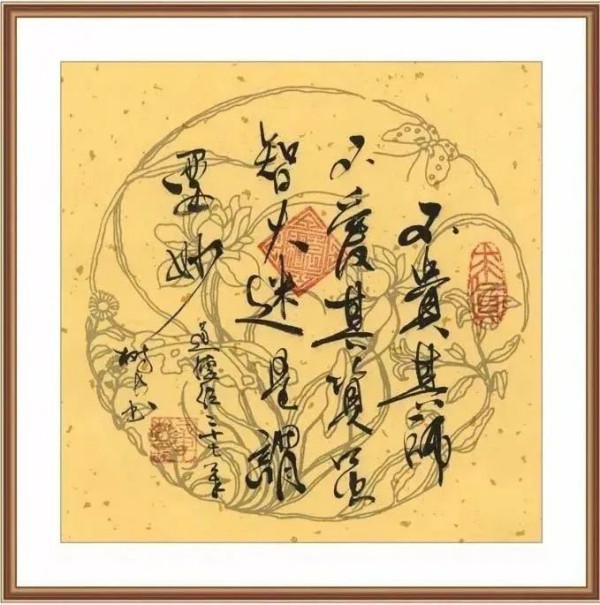 不貴其師
不愛其資虽
智大迷是謂
要妙
道德经二十七章